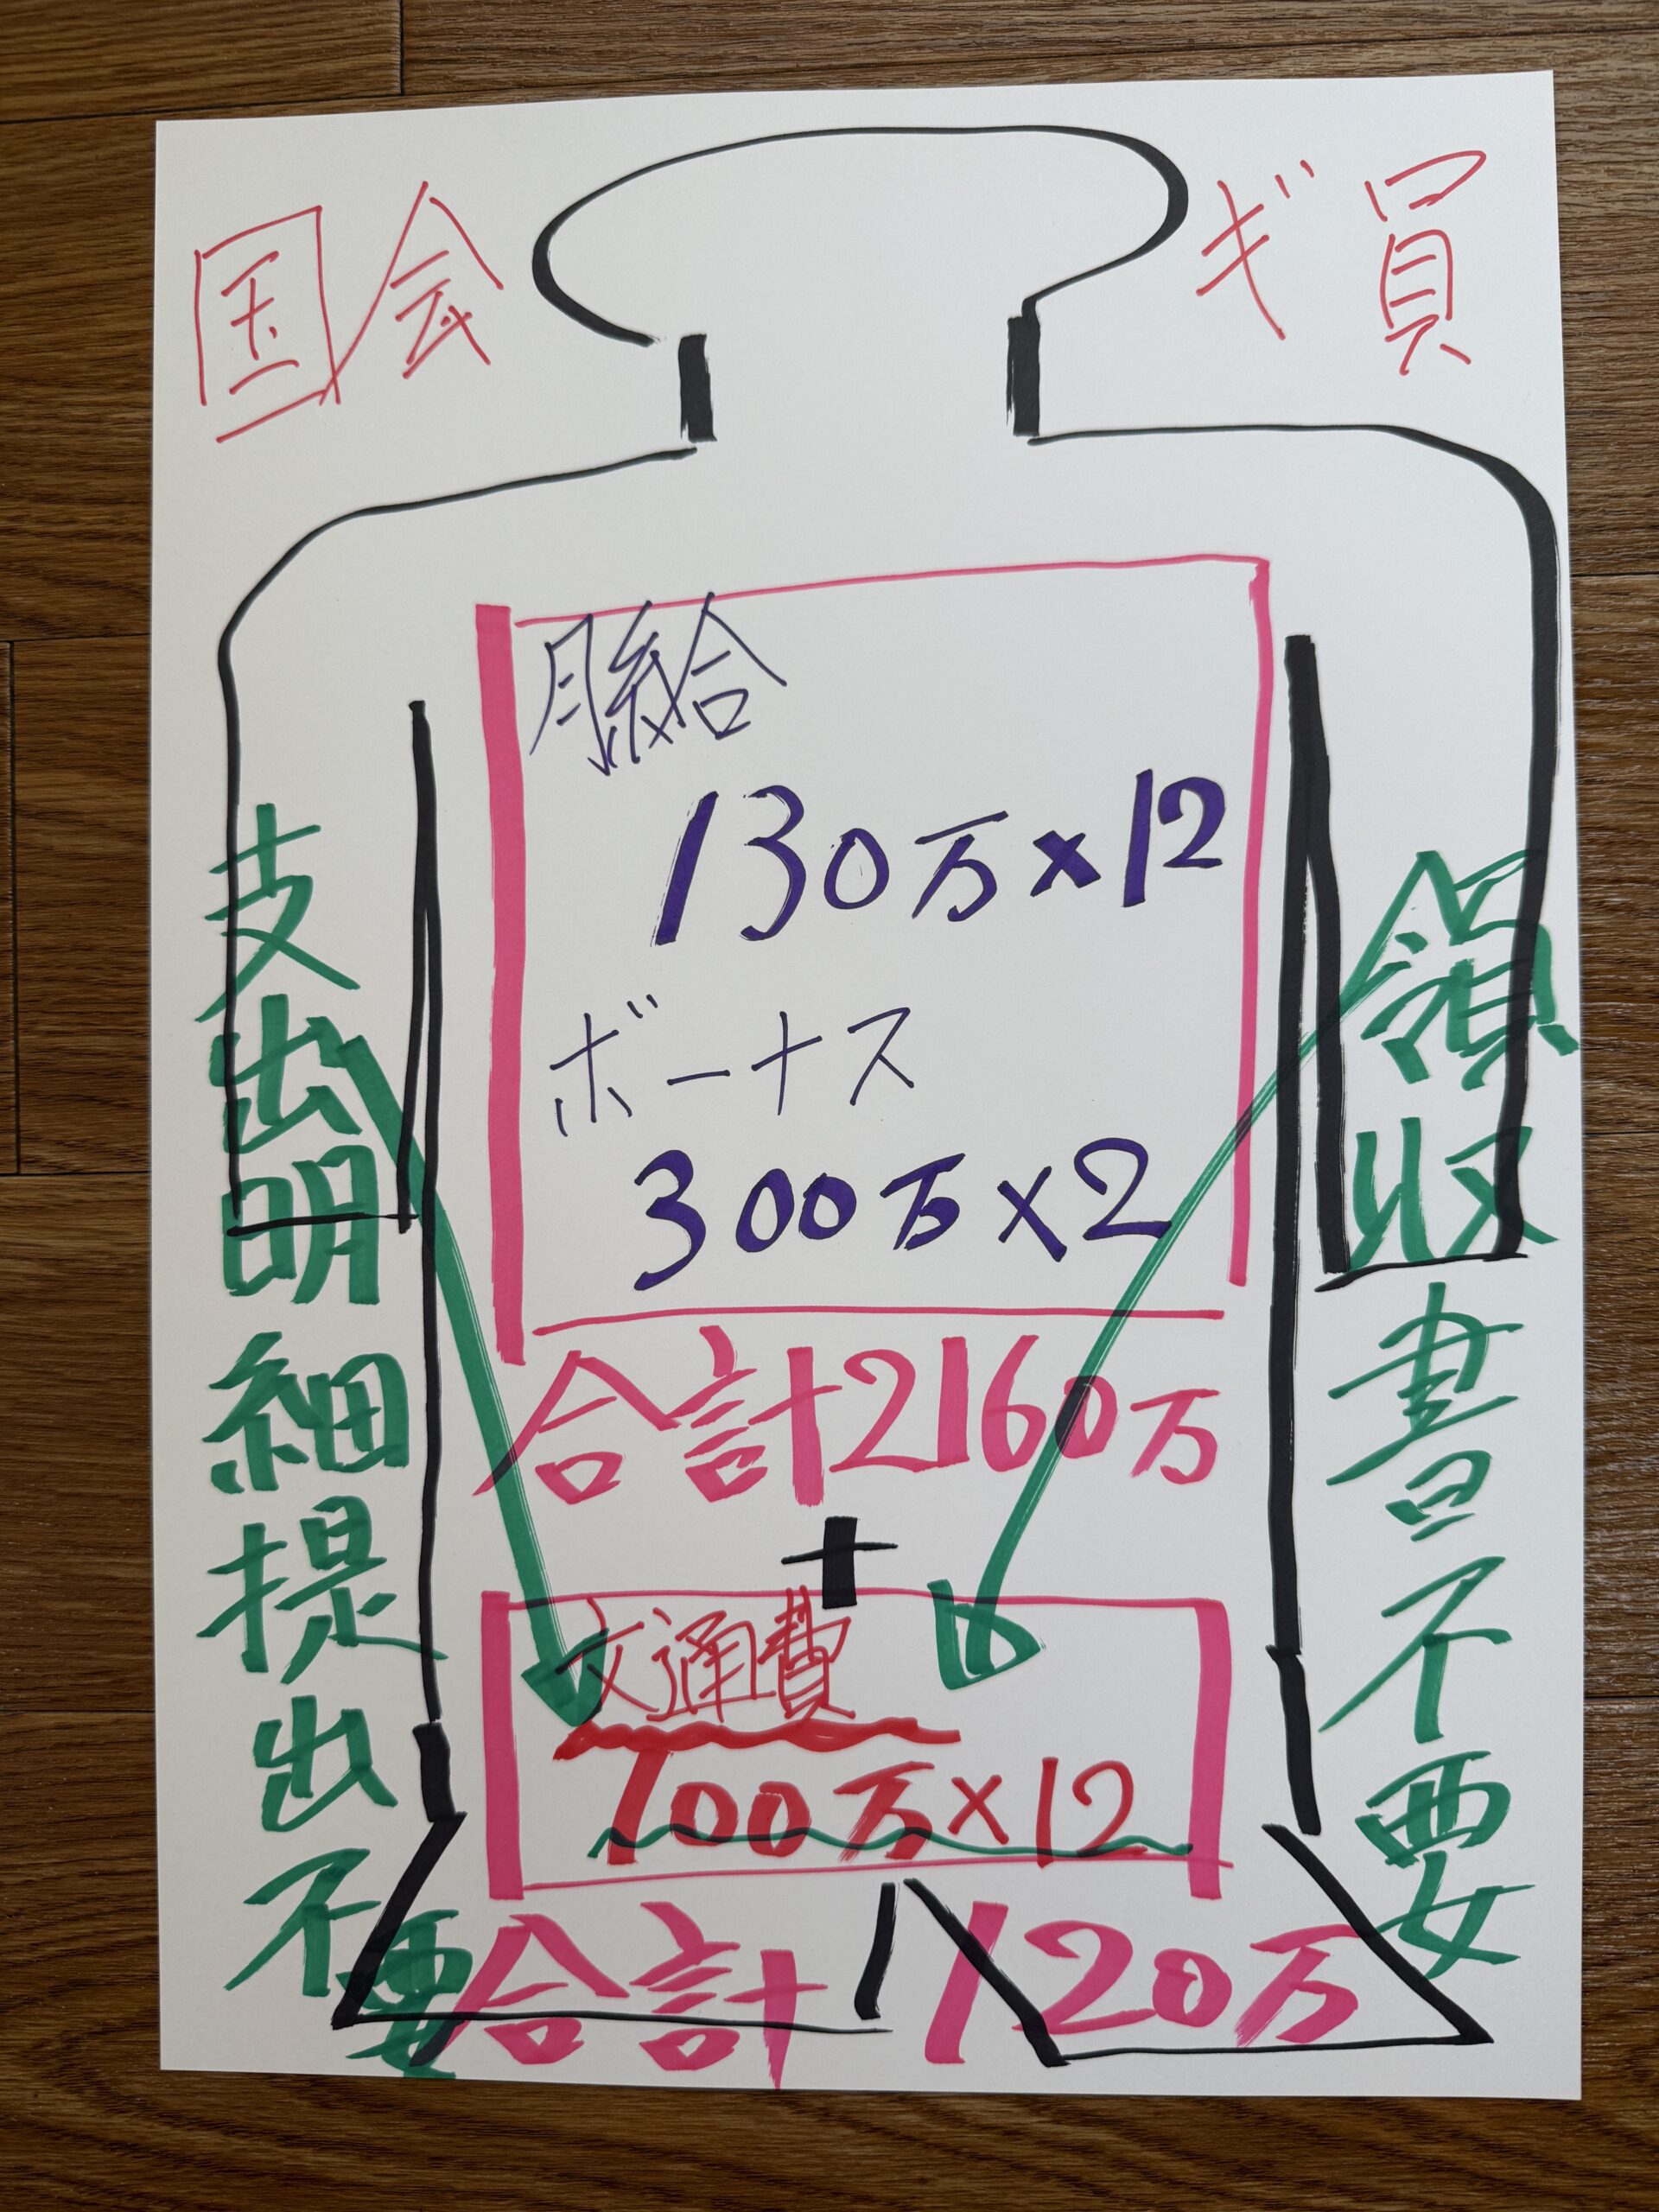 国会ギ員
月給
130万×12
ボーナス
300万×2
合計2160万
+
文通費
100万×12
合計120万
支出明細提出不要
領収書不要